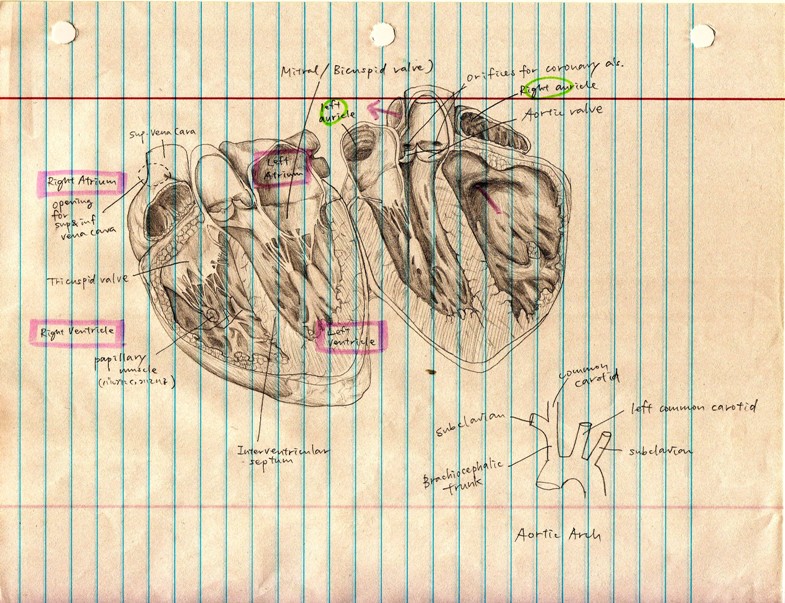 Mitral/Bicuspid valve)
orifices for coronary a's.
Right auricle
Aortic valve
left
auricle
sup. vena cava
Left
Atrium
Right Atrium
opening
for
sup & inf
vena cava
Tricuspid valve
Right Ventricle
Left
Ventricle
papillary
muscle
Interventricular
septum
common
carotid
left common carotid
subclavian
subclavian
Brachiocephalic
trunk
Aortic Arch